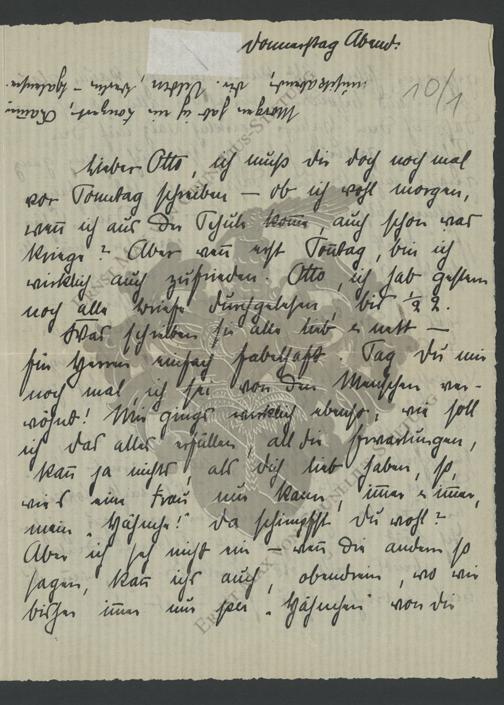 Donnerstag Abend.
10/1
Morgen hab ich ein Konzert,
Lieber Otto, ich muß dir doch noch mal
vor Sonntag schreiben – ob ich wohl morgen,
wenn ich aus der Schule komme, auch schon was
kriege? Aber wenn erst Sonntag, bin ich
wirklich auch zufrieden. Otto, ich hab gestern
noch alle Briefe durchgelesen, bis ½ 2.
Was schreiben sie alle lieb u nett –
Herren einfach fabelhaft. Sag Du mir
noch mal, ich sei von den Menschen ver-
wöhnt! Mir gings wirklich ebenso; wie soll
ich das alles erfüllen, all die Erwartungen,
kann ja nichts, als Dich lieb haben, so,
wie's eine Frau nur kann, immer u immer,
mein „Hähnche!“ Da schimpfst Du wohl?
Aber ich seh nicht ein – wenn die andern so
sagen, kann ichs auch, obendrein, wo wir
bisher immer nur per „Hähnchen“ von dir
ERNST MARX VON CORNELIUS-STIFTUNG